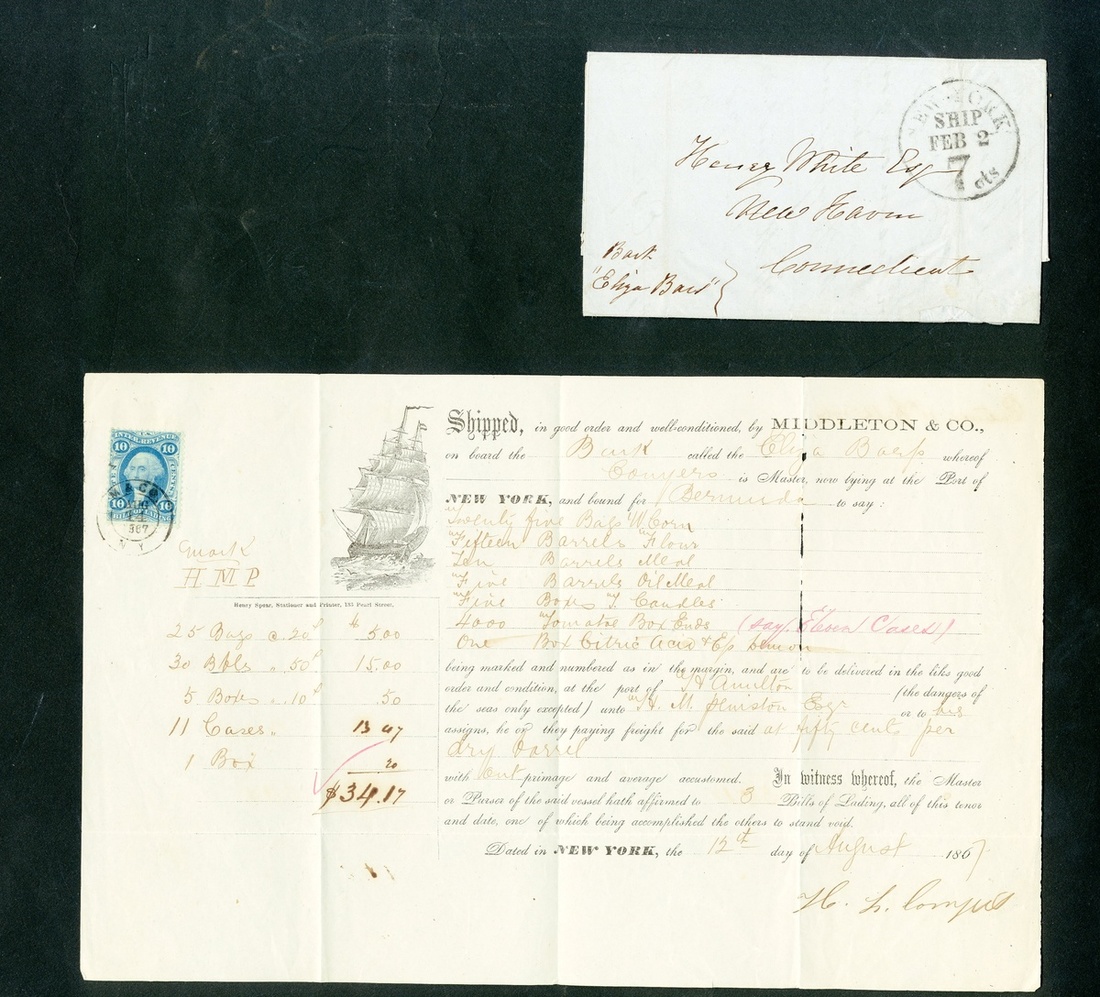 NEW YORK
SHIP
FEB 2
7
cts
Henry White Esq
New Haven
Connecticut
Bark
"Eliza Bars"
U.S.
10 INTER. REVENUE 10
TEN CENTS
10 10
BILL OF LADING
M & CO
AUG
1867
N.Y.
mark
H M P
Henry Spear, Stationer and Printer, 135 Pearl Street.
25 Bags c. 20 5.00
30 Bbls " 50 15.00
5 Boxes " 10 .50
11 Cases " 13 47
1 Box 20
$34.17
Shipped, in good order and well-conditioned, by MIDDLETON & CO.,
on board the Bark called the Eliza Barss whereof
Conyers is Master, now lying at the Port of
NEW YORK, and bound for Bermuda to say:
Twenty five Bags W Corn
Fifteen Barrels Flour
Ten Barrels Meal
Five Barrels Oil Meal
Five Boxes T. Candles
4000 Tomatoe Box Ends (say Eleven Cases)
One Box Citric Acid & Es Lemon
being marked and numbered as in the margin, and are to be delivered in the like good
order and condition, at the port of Hamilton (the dangers of
the seas only excepted) unto H. M. Esqr or to his
assigns, he or they paying freight for the said at fifty cents per
dry barrel
with out primage and average accustomed. In witness whereof, the Master
or Purser of the said vessel hath affirmed to 3 Bills of Lading, all of this tenor
and date, one of which being accomplished the others to stand void.
Dated in NEW YORK, the 12th day of August 1867